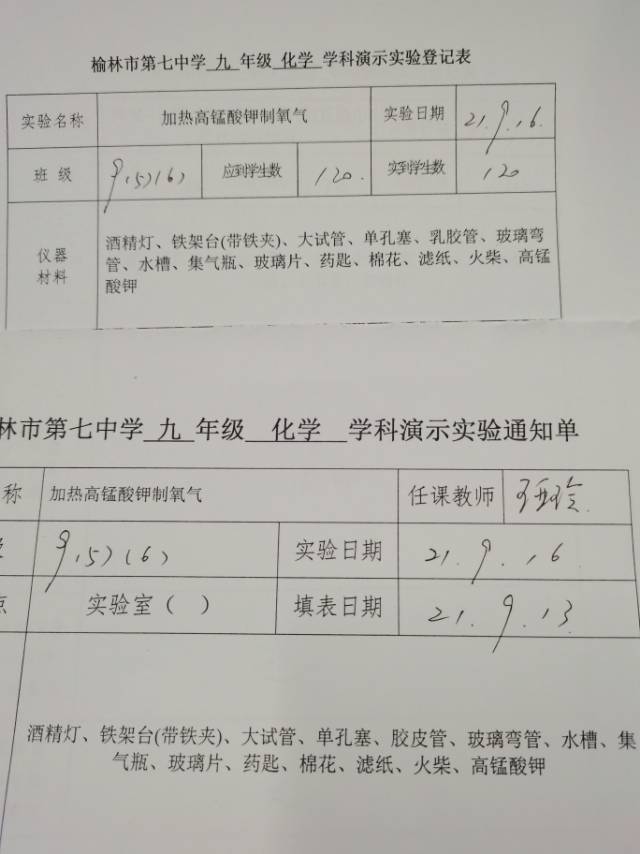 榆林市第七中学 九 年级 化学 学科演示实验登记表
实验名称 加热高锰酸钾制氧气 实验日期 21.9.16.
班 级 9.(5)(6) 应到学生数 120. 实到学生数 120
仪器材料 酒精灯、铁架台(带铁夹)、大试管、单孔塞、乳胶管、玻璃弯
管、水槽、集气瓶、玻璃片、药匙、棉花、滤纸、火柴、高锰
酸钾
林市第七中学 九 年级 化学 学科演示实验通知单
称 加热高锰酸钾制氧气 任课教师
9.(5)(6) 实验日期 21.9.16
点 实验室（ ） 填表日期 21.9.13
酒精灯、铁架台(带铁夹)、大试管、单孔塞、胶皮管、玻璃弯管、水槽、集
气瓶、玻璃片、药匙、棉花、滤纸、火柴、高锰酸钾